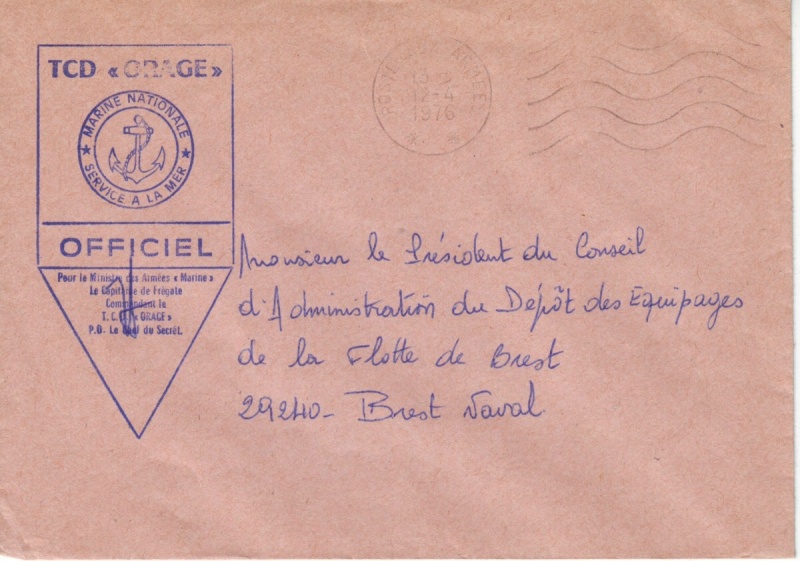 TCD « ORAGE »
MARINE NATIONALE
SERVICE A LA MER
OFFICIEL
Pour le Ministre des Armées « Marine »
Le Capitaine de Frégate
Commandant le
T.C.D. « ORAGE »
P.O. Le Chef du Secrét.
POSTE NAVALE
13
12-4
1976
Monsieur le Président du Conseil
d'Administration du Dépôt des Equipages
de la Flotte de Brest
29240- Brest Naval